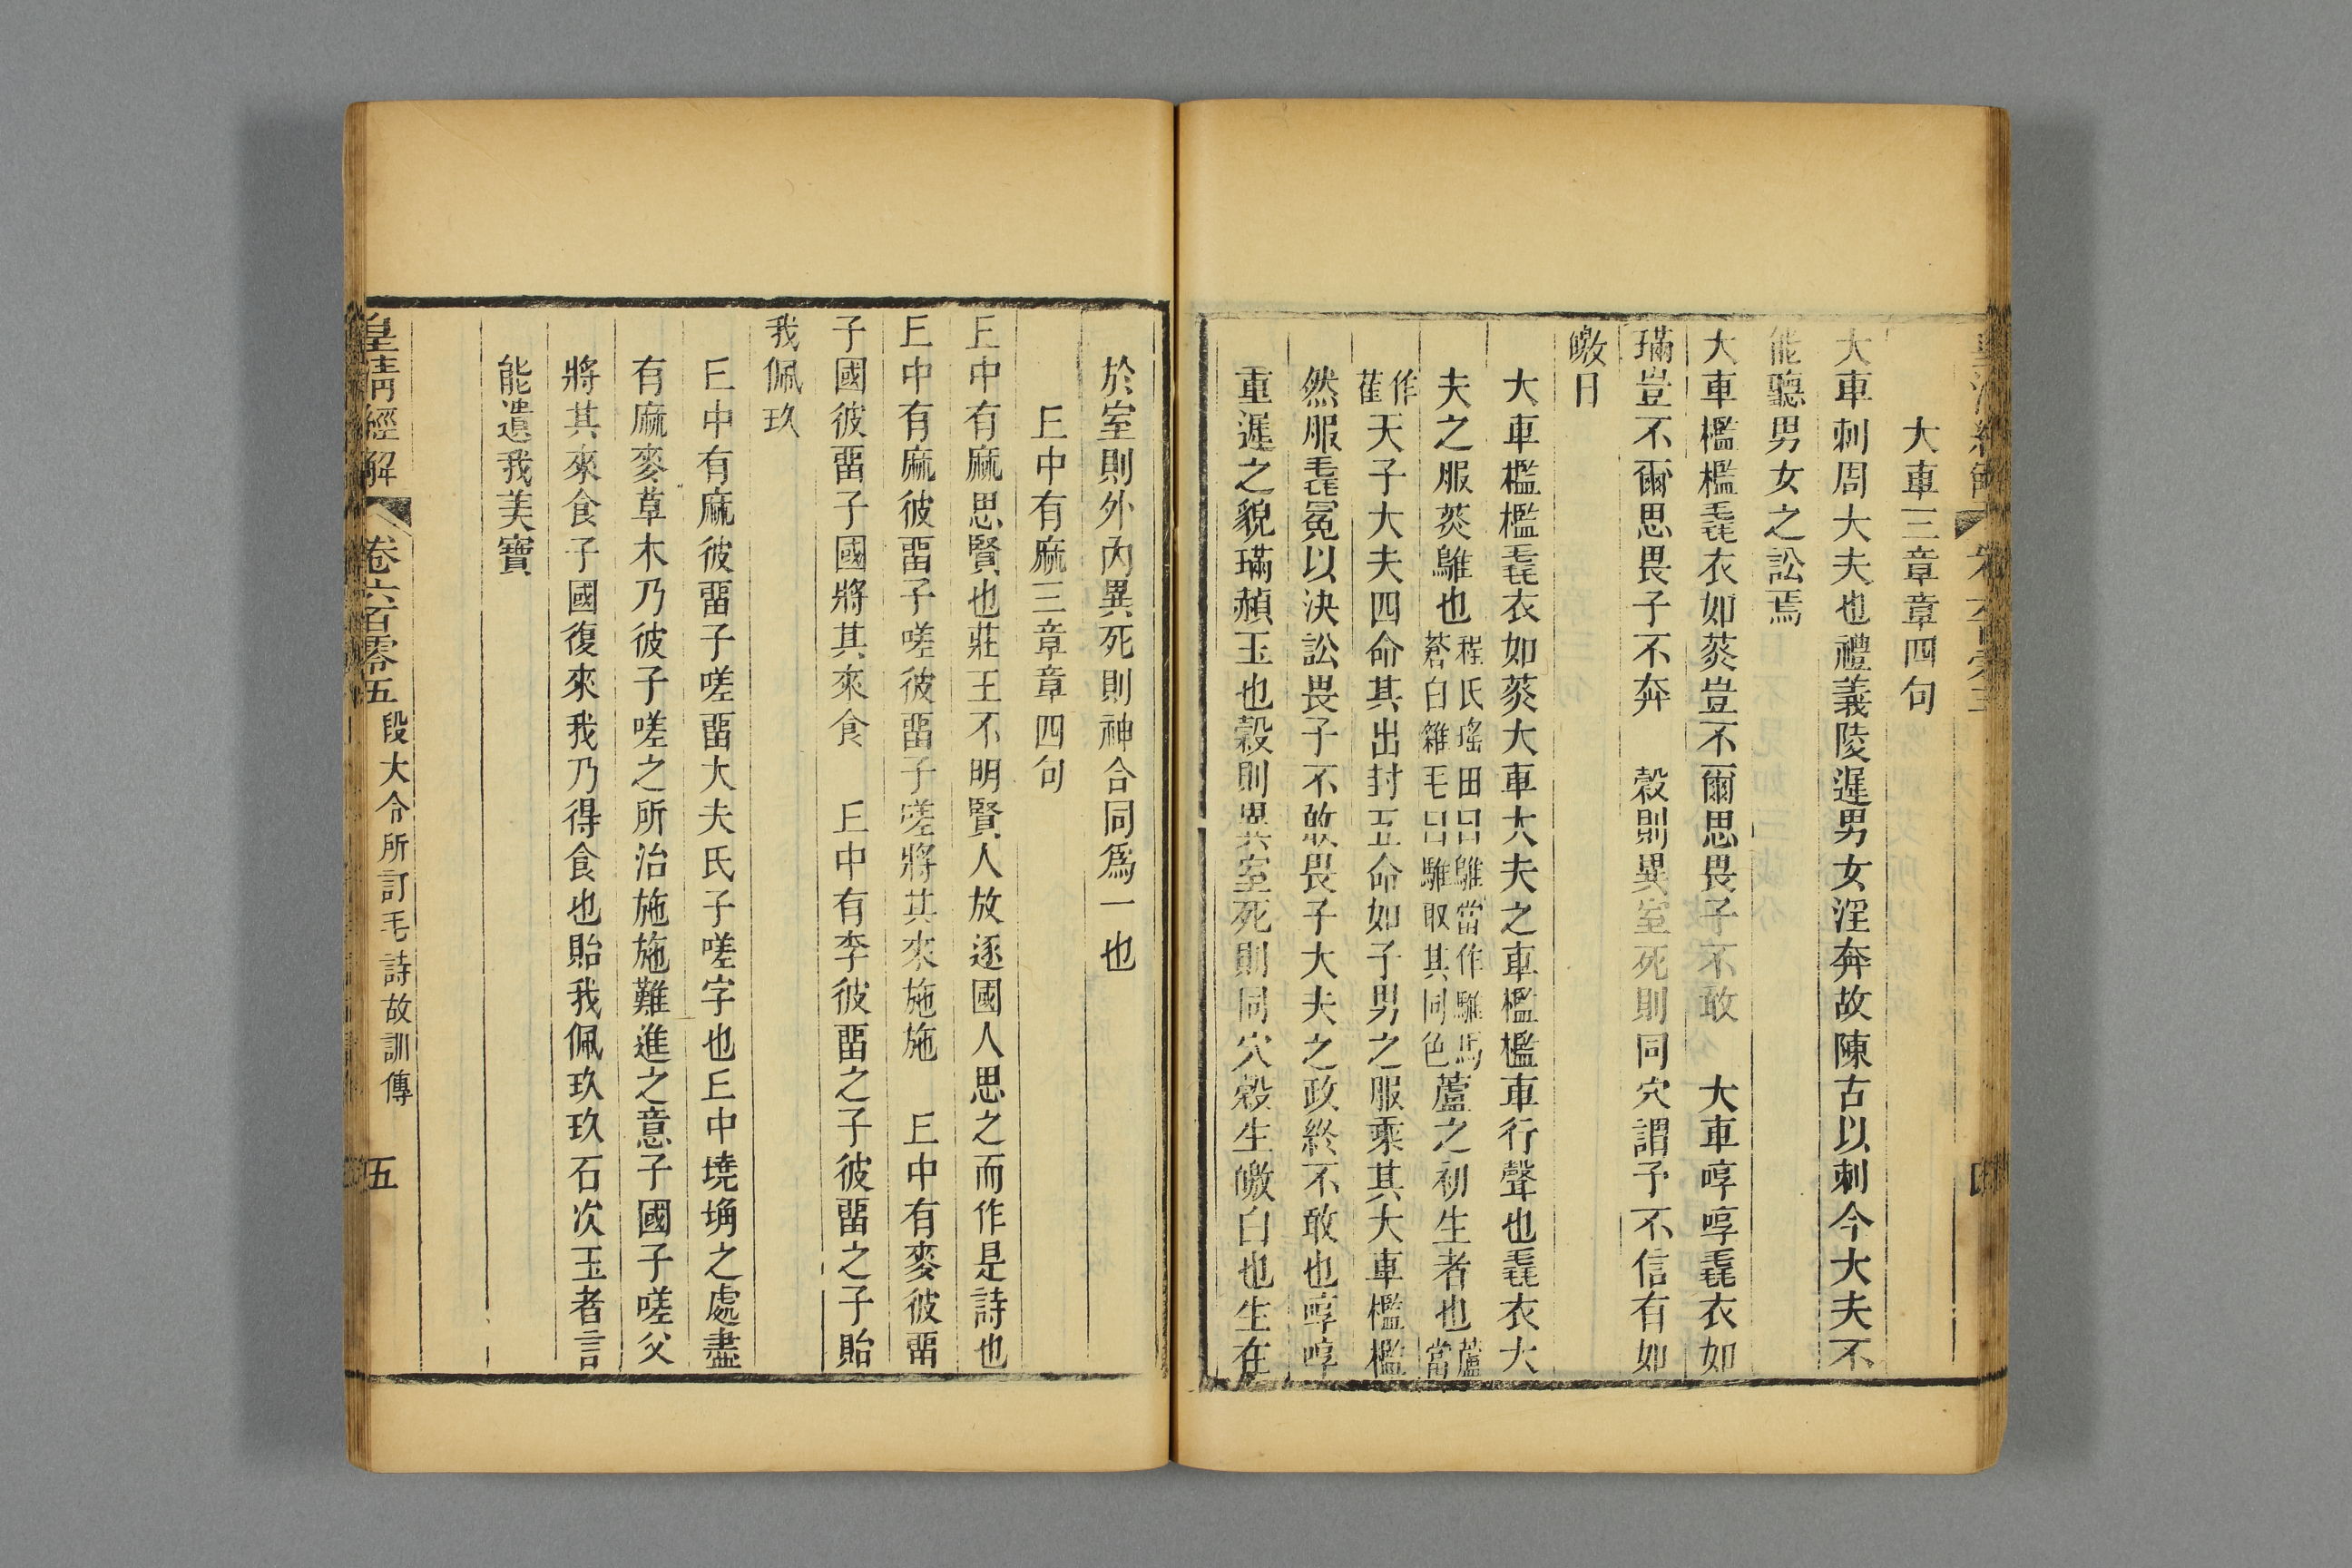 大車三章章四句
大車刺周大夫也禮義陵遲男女淫奔故陳古以刺今大夫不
能聽男女之訟焉
大車檻檻毳衣如菼豈不爾思畏子不敢　大車啍啍毳衣如
璊豈不爾思畏子不奔　穀則異室死則同穴謂予不信有如
皦日
大車檻檻毳衣如菼大車大夫之車檻檻車行聲也毳衣大
夫之服菼鵻也程氏瑤田曰鵻當作騅馬蒼白雜毛曰騅取其同色蘆之初生者也蘆當
作萑天子大夫四命其出封五命如子男之服乘其大車檻檻
然服毳冕以決訟畏子不敢畏子大夫之政終不敢也啍啍
重遲之貌璊赬玉也穀則異室死則同穴穀生皦白也生在
於室則外內異死則神合同爲一也
𠀉中有麻三章章四句
𠀉中有麻思賢也莊王不明賢人放逐國人思之而作是詩也
𠀉中有麻彼畱子嗟彼畱子嗟將其來施施　𠀉中有麥彼畱
子國彼畱子國將其來食　𠀉中有李彼畱之子彼畱之子貽
我佩玖
𠀉中有麻彼畱子嗟畱大夫氏子嗟字也𠀉中墝埆之處盡
有麻麥草木乃彼子嗟之所治施施難進之意子國子嗟父
將其來食子國復來我乃得食也貽我佩玖玖石次玉者言
能遺我美寶
皇清經解　卷六百零五　段大令所訂毛詩故訓傳　五